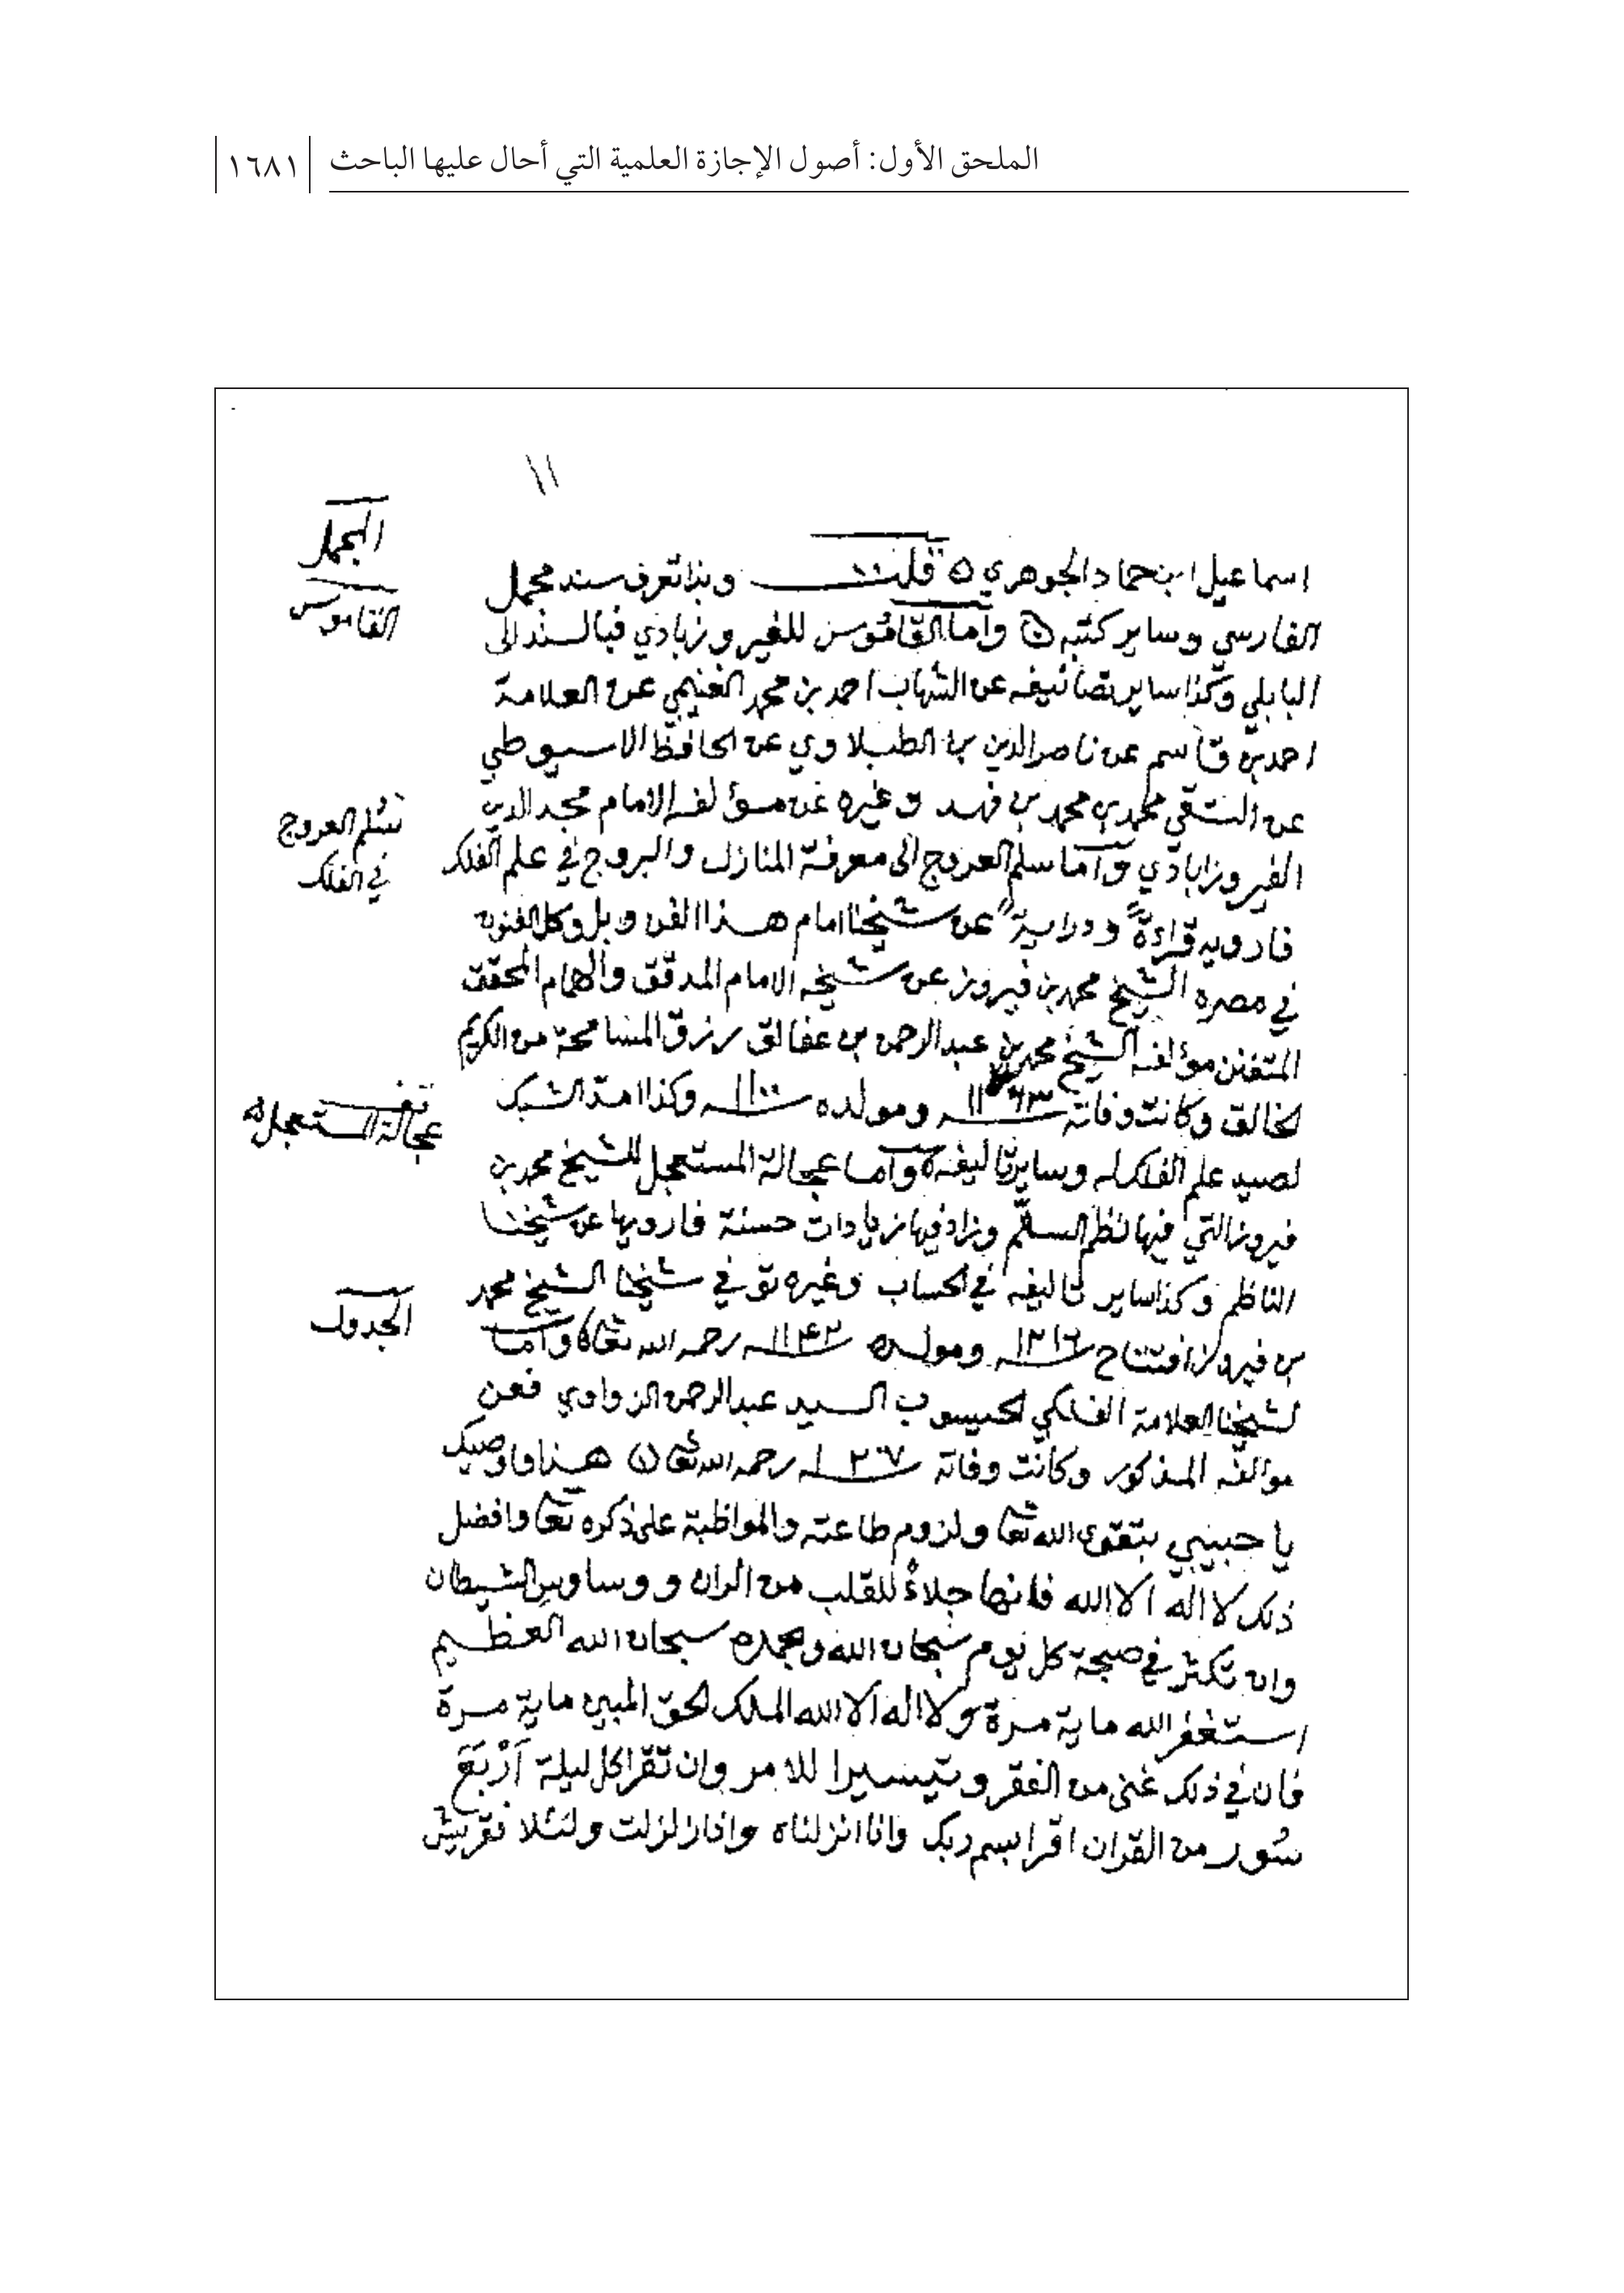 الملحق الأول: أصول الإجازة العلمية التي أحال عليها الباحث
١٦٨١
١١
اسماعيل ابن حماد الجوهري ٥ قلت وبذا تعرف سند مجمل
المجمل
الفارسي وساير كتبه ٥ واما القاموس للفيروزبادي فبالسند الى
القاموس
البابلي وكذا ساير تصانيفه عن الشهاب احمد بن محمد الغنيمي عن العلامة
احمد بن قاسم عن ناصر الدين الطبلاوي عن الحافظ الاسيوطي
عن التقي محمد بن محمد بن فهد وغيره عن مؤلفه الامام مجد الدين
الفيروزابادي واما سلم العروج الى معرفة المنازل والبروج في علم الفلك
سلم العروج
في الفلك
فارويه قراءة ودراية عن شيخنا امام هذا الفن وبل وكل الفنون
في مصره الشيخ محمد بن فيروز عن شيخه الامام المدقق والهمام المحقق
المتفنن مؤلفه الشيخ محمد بن عبد الرحمن بن عفالق رزق المسامحة من الكريم
الخالق وكانت وفاته ١١٦٣ ومولده ١١٠٠ وكذا امد الشبك
لصيد علم الفلك له وساير تاليفه ٥ واما عجالة المستعجل للشيخ محمد بن
عجالة المستعجل له
فيروز التي فيها نظم السلم وزاد فيها زيادات حسنة فارويها عن شيخنا
الناظم وكذا ساير تاليفه في الحساب وغيره توفي شيخنا الشيخ محمد
بن فيروز افتتاح ١٢١٦ ومولده ١١٤٢ رحمه الله تعالى واما
الجدول
لشيخنا العلامة الفلكي الحيسوب السيد عبد الرحمن الزواوي فعن
موالفه المذكور وكانت وفاته ١٢٠٧ رحمه الله تعالى ٥ هذا واوصيك
يا حبيبي بتقوى الله تعالى ولزوم طاعته والمواظبة على ذكره تعالى وافضل
ذلك لا اله الا الله فانها جلاءٌ للقلب من الران ووساوس الشيطان
وان تكثر في صبيحة كل يوم سبحان الله وبحمده سبحان الله العظيم
استغفر الله ماية مرة ولا اله الا الله الملك الحق المبين ماية مرة
فان في ذلك غنى من الفقر وتيسيرا للامر وان تقرا كل ليلة أَرْبَعَ
سُور من القران اقرا بسم ربك وانا انزلناه واذا زلزلت ولئلا ف قريش